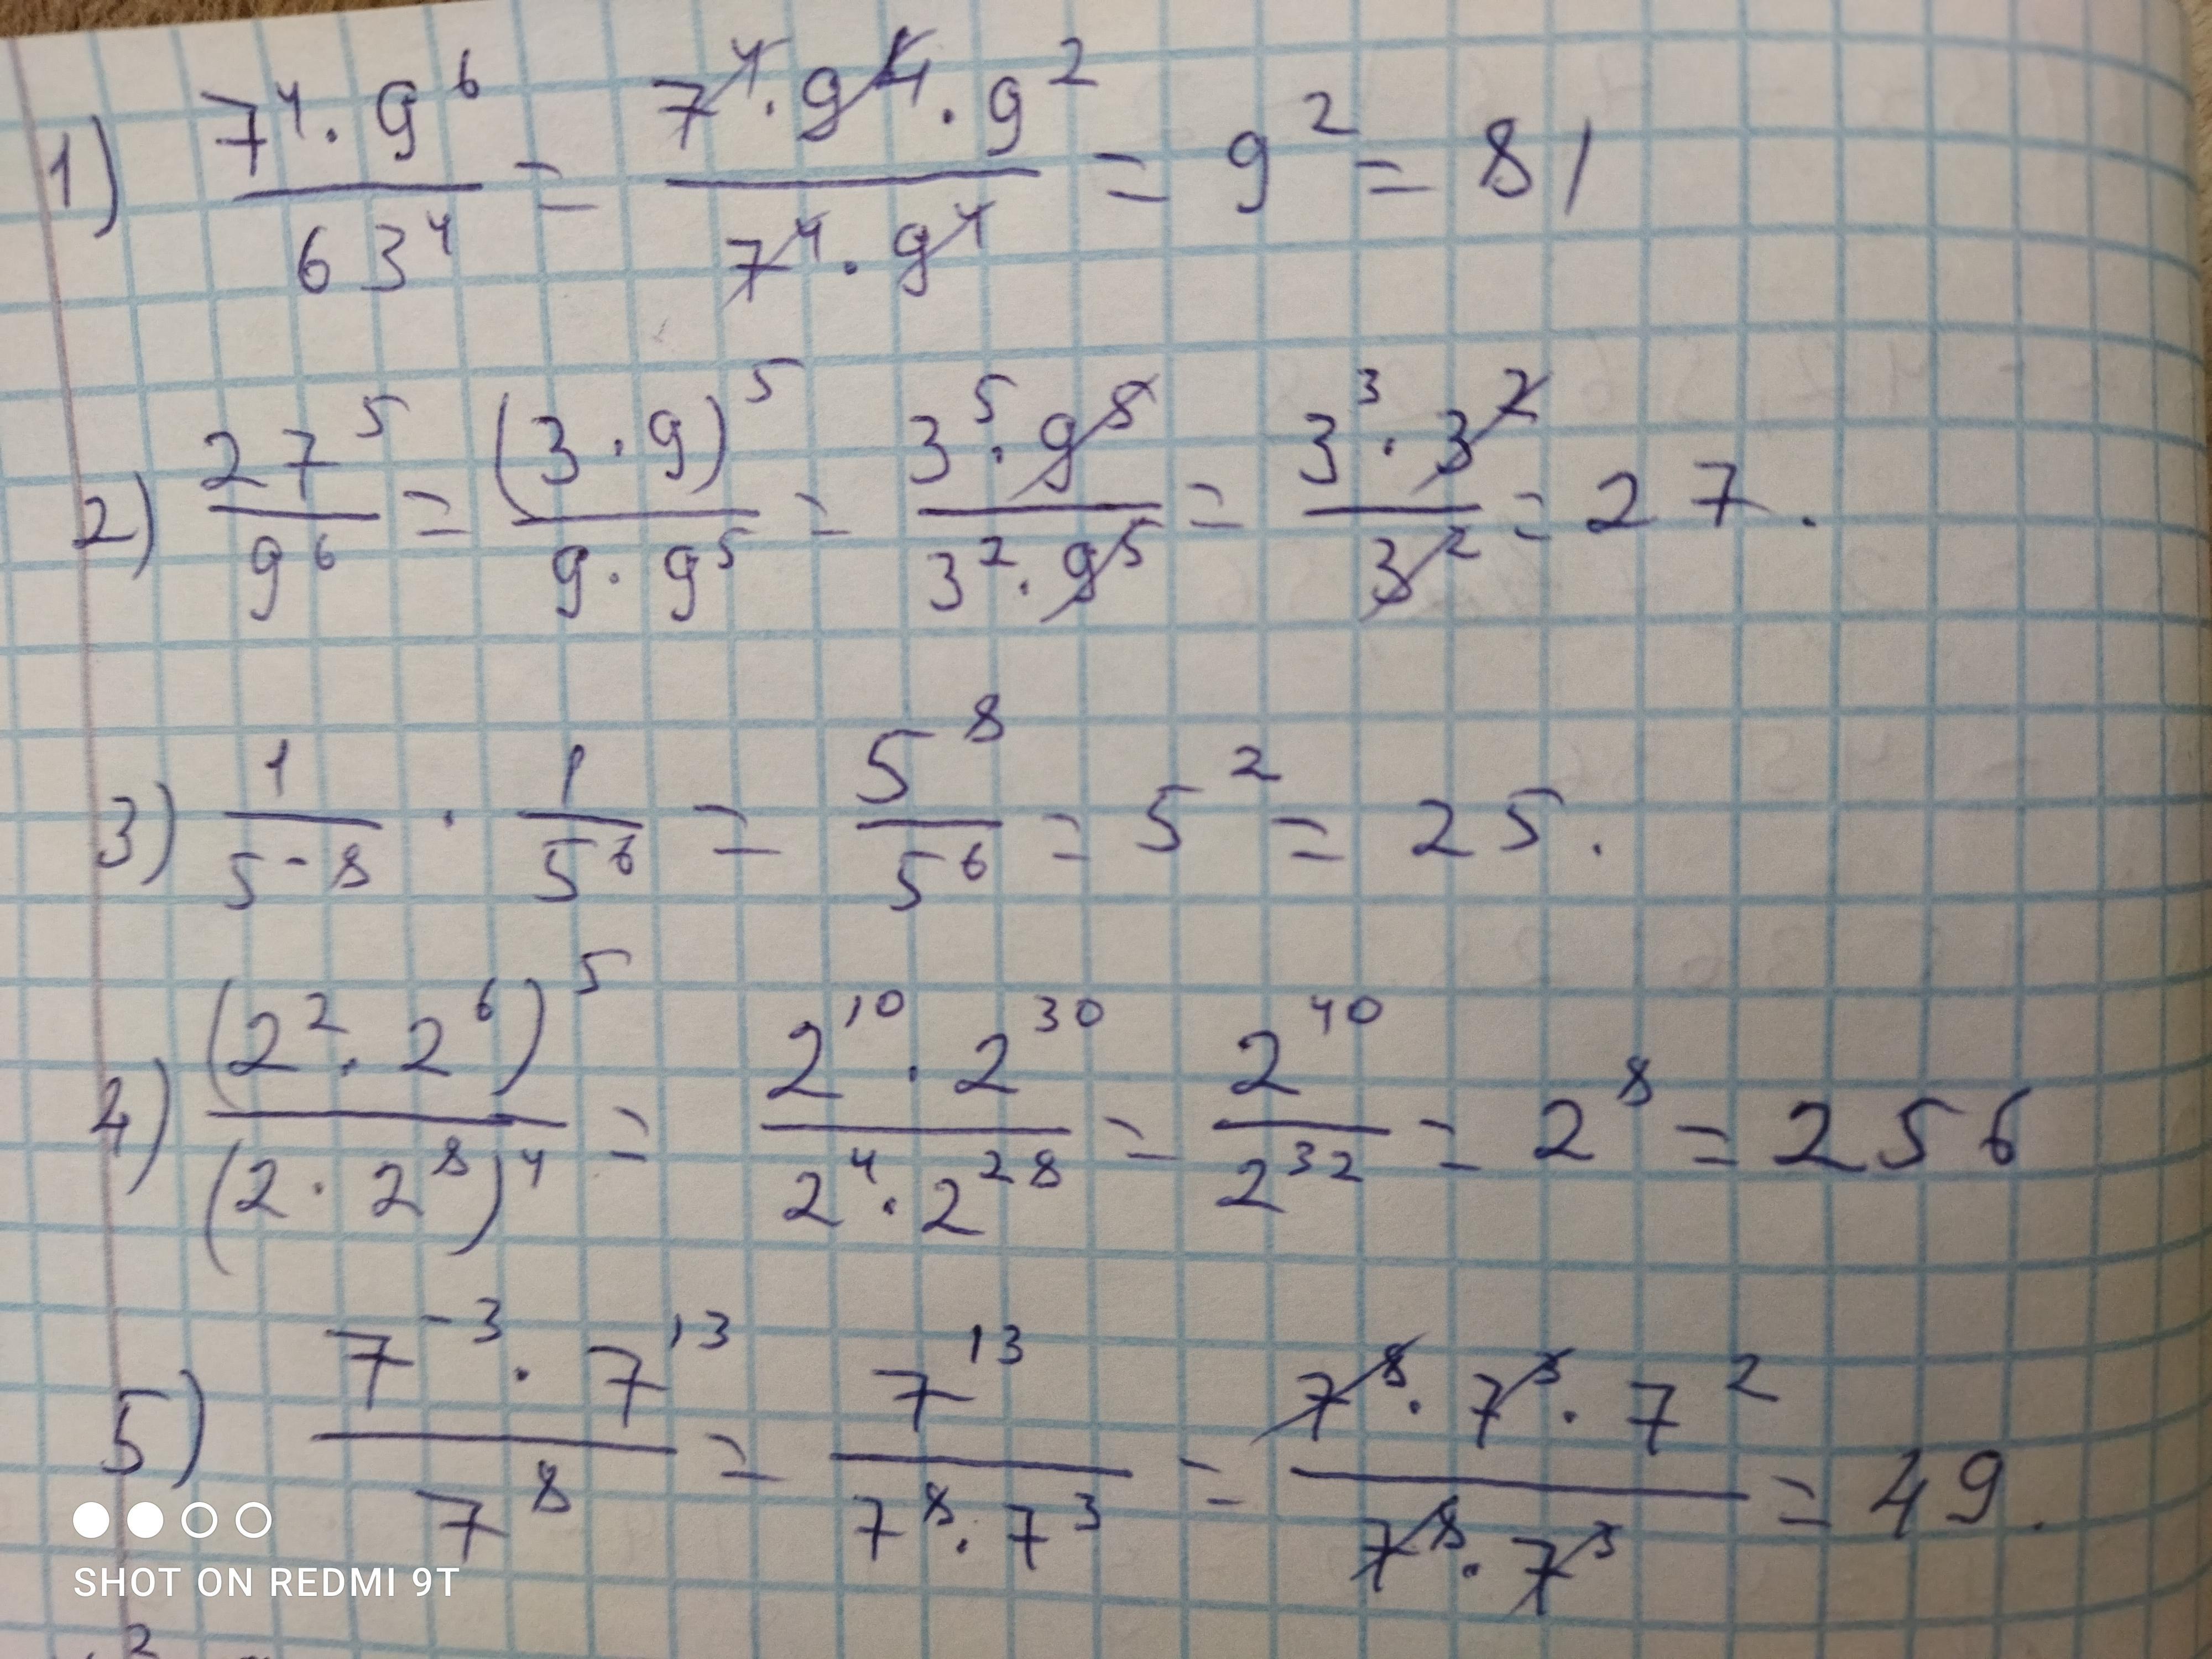 1) (7⁴ · 9⁶)/(63⁴) = (7⁴ · 9⁴ · 9²)/(7⁴ · 9⁴) = 9² = 81
2) 27⁵/9⁶ = (3 · 9)⁵/(9 · 9⁵) = (3⁵ · 9⁵)/(3² · 9⁵) = (3³ · 3²)/3² = 27.
3) 1/5⁻⁸ · 1/5⁶ = 5⁸/5⁶ = 5² = 25.
4) (2² · 2⁶)⁵/(2 · 2⁸)⁴ = (2¹⁰ · 2³⁰)/(2⁴ · 2²⁸) = 2⁴⁰/2³² = 2⁸ = 256
5) (7⁻³ · 7¹³)/7⁸ = 7¹³/(7⁸ · 7³) = (7⁸ · 7³ · 7²)/(7⁸ · 7³) = 49.
SHOT ON REDMI 9T
2